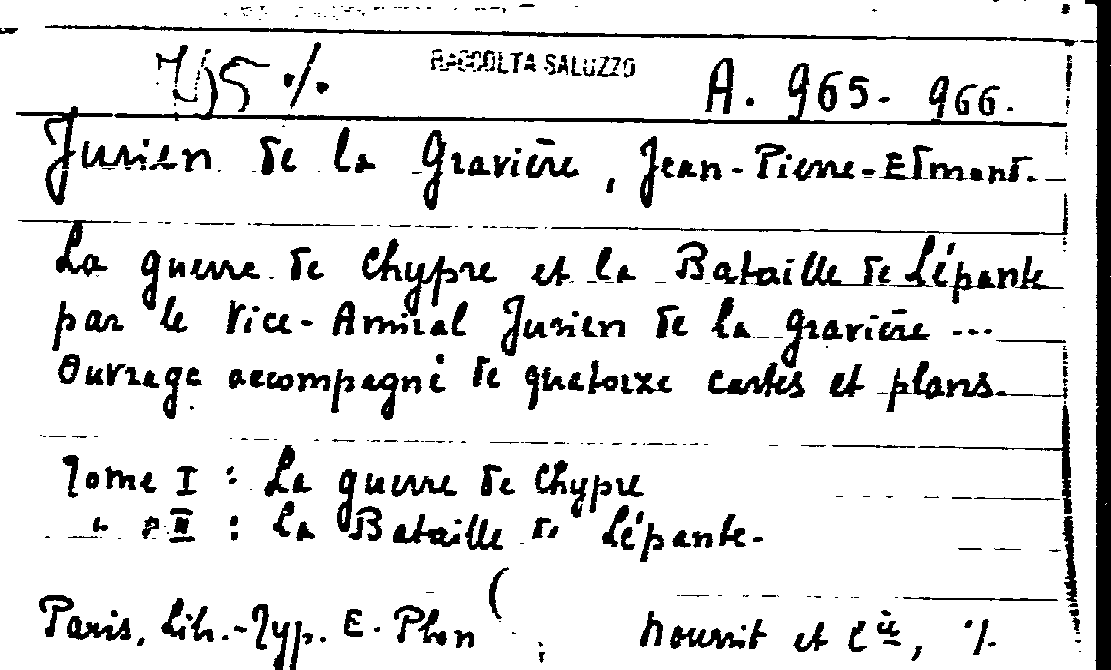 RACCOLTA SALUZZO A. 965-966.
Jurien de la Gravière, Jean-Pierre-Edmond.
La guerre de Chypre et la Bataille de Lépante
par le Vice-Amiral Jurien de la Gravière ...
Ouvrage accompagné de quatorze cartes et plans.
Tome I : La guerre de Chypre
" II : La Bataille de Lépante.
Paris, Lib.-Typ. E. Plon ( , Nourrit et C.ie, %